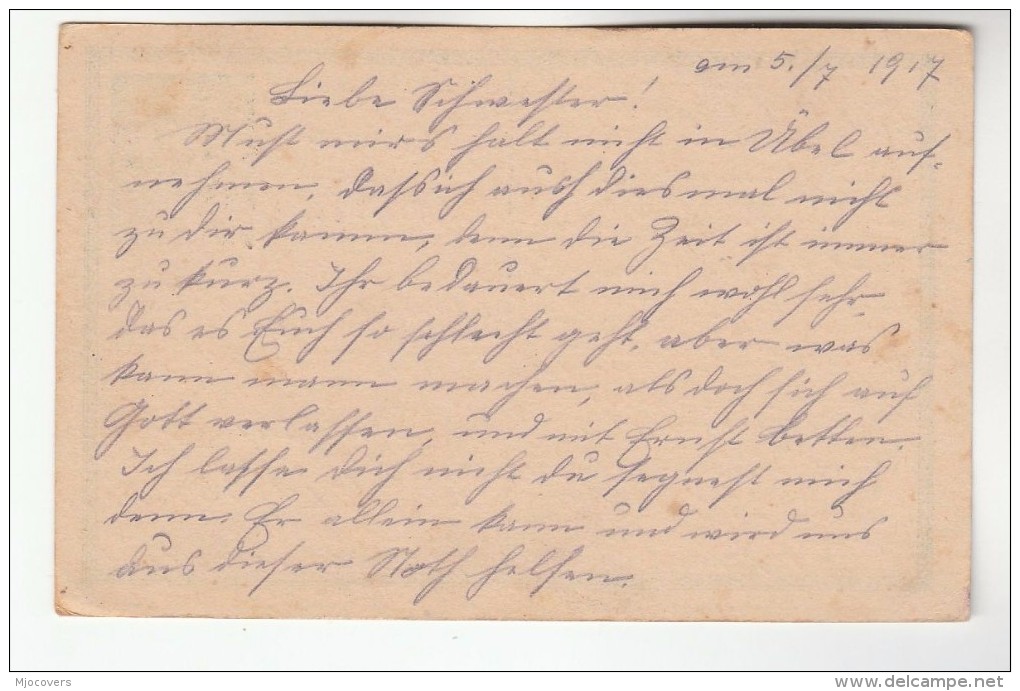 am 5./7 1917
Liebe Schwester!
Must mirs halt nicht in Übel auf-
nehmen, dasich auch diesmal nicht
zu dir kamm, denn die Zeit ist immer
zu kurz. Ihr bedauert mich wohl sehr,
das es Euch so schlecht geht, aber was
kann mann machen, als doch sich auf
Gott verlassen, und mit Ernst betten.
Ich lasse dich nicht du segnest mich
denn. Er allein kann und wird uns
aus dieser Noth helfen.
Mjocovers
www.delcampe.net